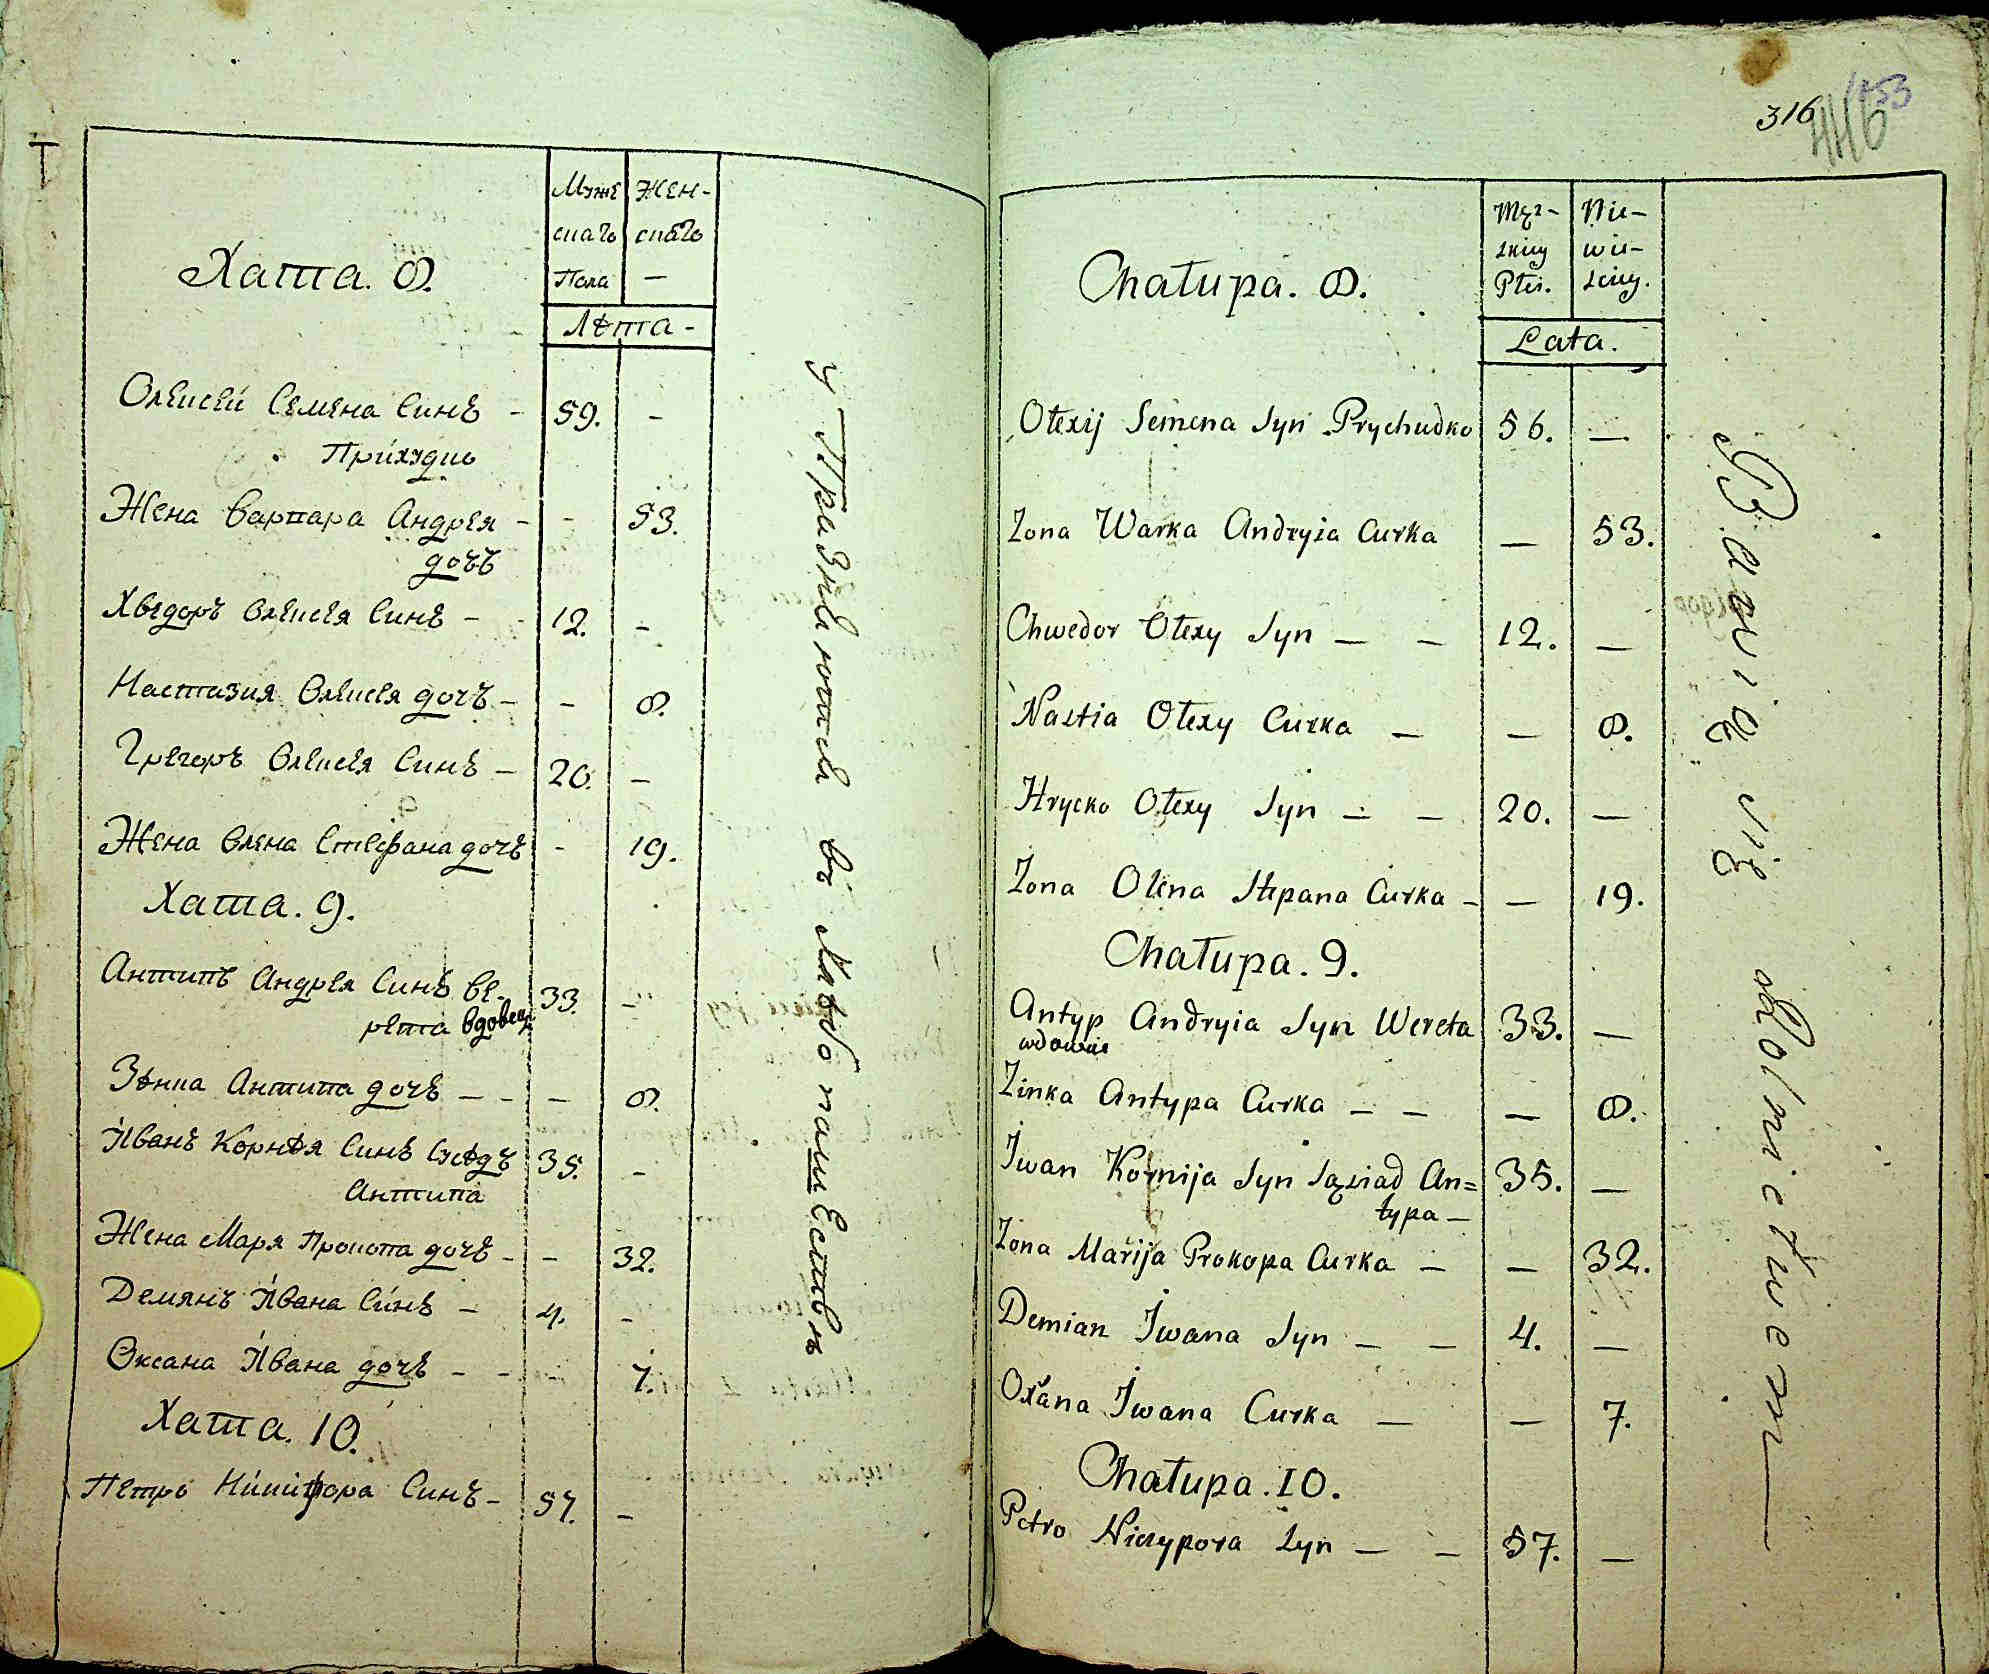 Муже Жен-
скаго скаго
Пола —
Хата. 8.
Лѣта -
Олексей Семена Синъ - 59. -
Прихудко
Жена Варвара Андрея - - 53.
дочъ
Хведоръ Олексея Синъ - 12. -
Настазия Олексея дочъ - - 8.
Грегоръ Олексея Синъ - 20. -
Жена Олена Стефана дочъ - 19.
Хата. 9.
Антипъ Андрея Синъ Ве- 33. -
рета вдовец
Зѣнка Антипа дочъ - - - 8.
Иванъ Корнѣя Синъ Сусѣдъ 35. -
Антипа
Жена Маря Прокопа дочъ - - 32.
Демянъ Ивана Синъ - 4. -
Оксана Ивана дочъ - - - 7.
Хата. 10.
Петро Никифора Синъ - 57. -
упражняются въ хлѣбопашествѣ
316 453
446
Męz- Nie-
skiey wie-
Płci. sciey.
Chałupa. 8.
Lata.
Ołexij Semena Syn Prychudko 56. —
Zona Warka Andryia Curka — 53.
Chwedor Ołexy Syn — — 12. —
Nastia Ołexy Curka — — 8.
Hrycko Ołexy Syn — — 20. —
Zona Olena Stepana Curka - — 19.
Chałupa. 9.
Antyp Andryia Syn Wereta 33. —
wdowiec
Zinka Antypa Curka — — — 8.
Iwan Kornija Syn Sąsiad An= 35. —
typa —
Zona Marija Prokopa Curka — — 32.
Demian Iwana Syn — — 4. —
Oxana Iwana Curka — — 7.
Chałupa. 10.
Petro Niczypora Syn — — 57. —
Bawią się Rolnictwem —